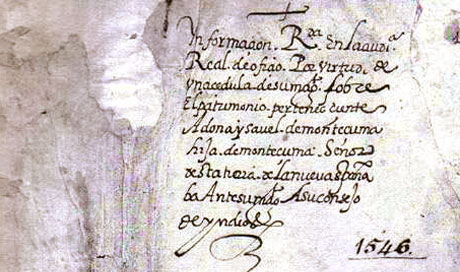 Informaçion. Rda. En la audia.
Real. de ofiçio. Por virtud. de
Una cedula de su magd. sobre
El patrimonio. perteneciente
A dona ysavel. de montecuma
hija. de montecuma. Señor
de Sta tierra. de la nueva españa
ba Ante su magd. A su consejo
de yndias
1546.